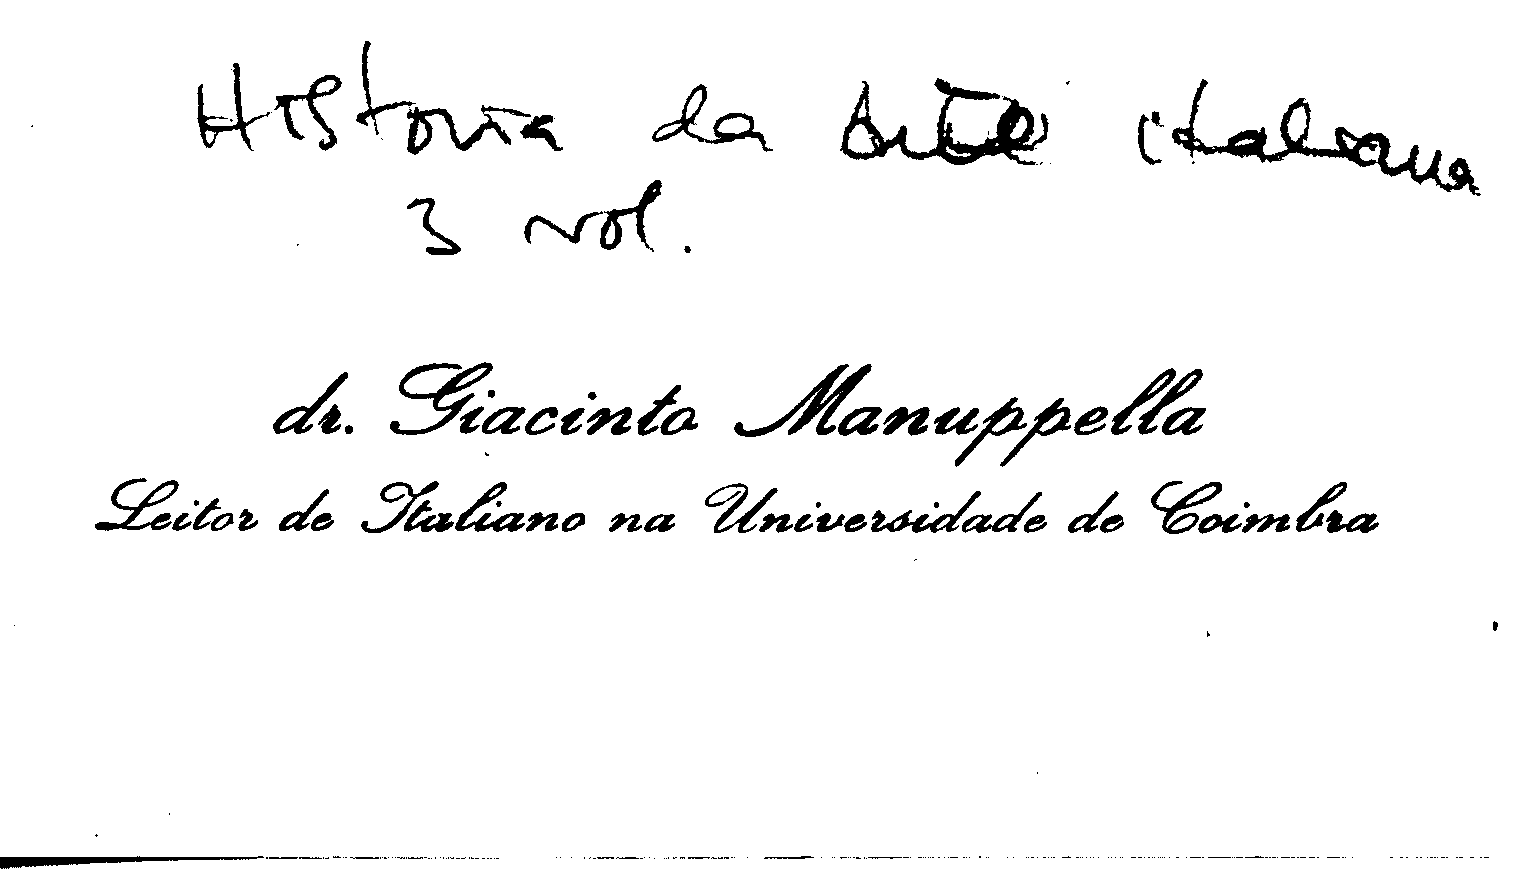 Historia da Arte italiana
3 vol.
dr. Giacinto Manuppella
Leitor de Italiano na Universidade de Coimbra